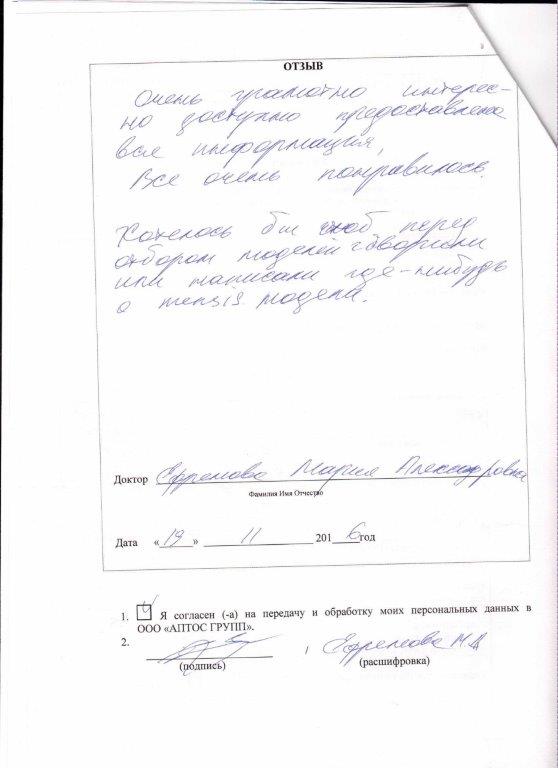 ОТЗЫВ
Очень грамотно интерес-
но доступно предоставлена
вся информация,
Все очень понравилось.
Хотелось бы чтоб перед
отбором моделей говорили
или написали где-нибудь
о mensis модели.
Доктор Ефремова Мария Александровна
Фамилия Имя Отчество
Дата «19» 11 2016 год
1. Я согласен (-а) на передачу и обработку моих персональных данных в
ООО «АПТОС ГРУПП».
2. / Ефремова М.А
(подпись) (расшифровка)